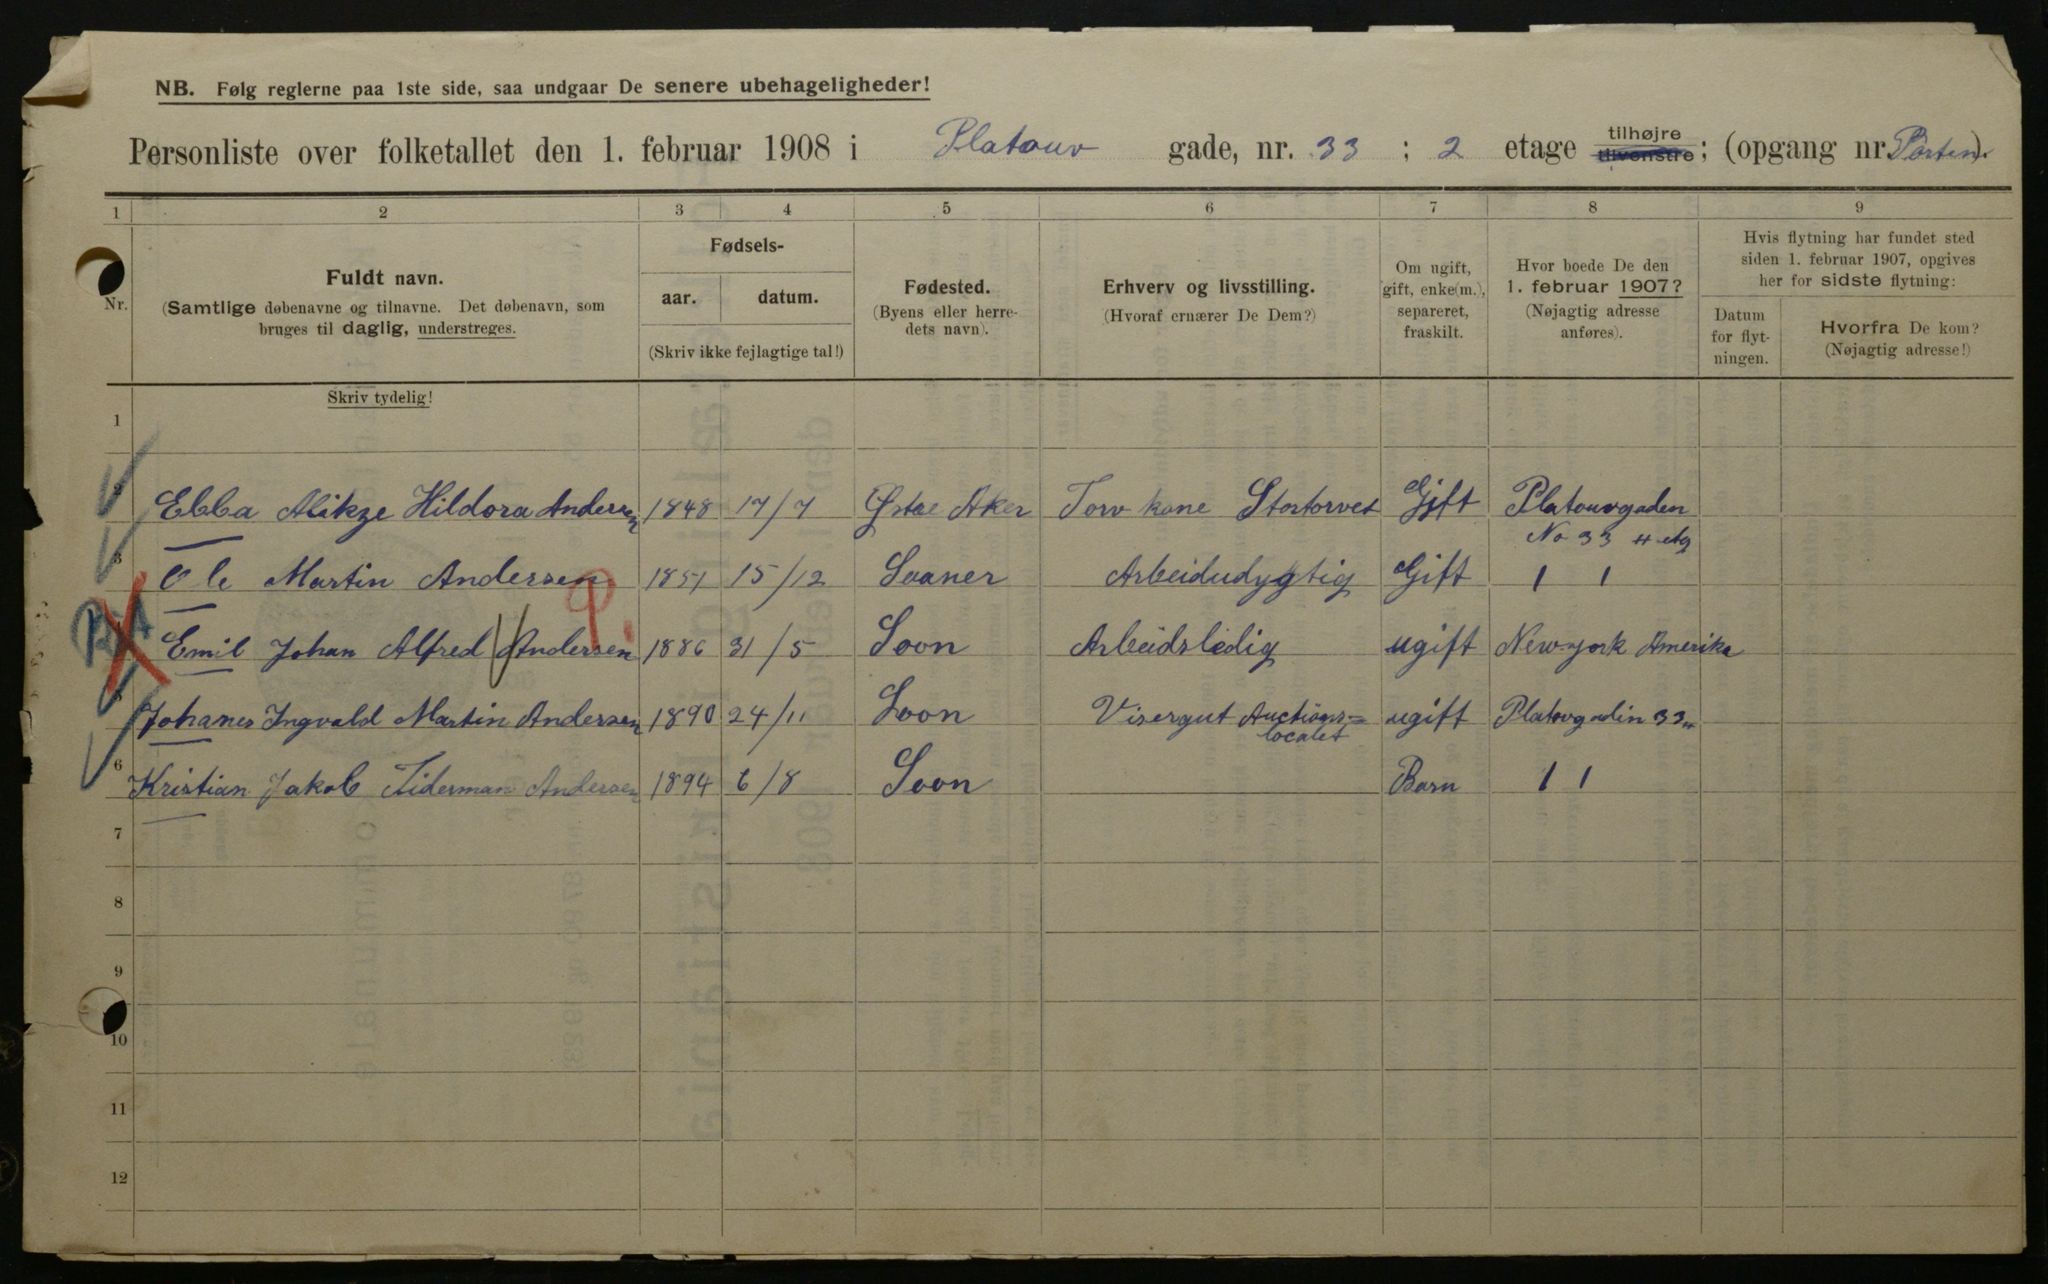 NB. Følg reglerne paa 1ste side, saa undgaar De senere ubehageligheder!
Personliste over folketallet den 1. februar 1908 i Platouv gade, nr. 33 ; 2 etage tilhøjre tilvenstre; (opgang nr. Porten).
1 2 3 4 5 6 7 8 9
Nr.
Fuldt navn.
(Samtlige døbenavne og tilnavne. Det døbenavn, som
bruges til daglig, understreges.
Skriv tydelig!
Fødsels-
aar. datum.
(Skriv ikke fejlagtige tal!)
Fødested.
(Byens eller herre-
dets navn).
Erhverv og livsstilling.
(Hvoraf ernærer De Dem?)
Om ugift,
gift, enke(m.),
separeret,
fraskilt.
Hvor boede De den
1. februar 1907?
(Nøjagtig adresse
anføres).
Hvis flytning har fundet sted
siden 1. februar 1907, opgives
her for sidste flytning:
Datum
for flyt-
ningen.
Hvorfra De kom?
(Nøjagtig adresse!)
1
2 Ebba Hildora Andersen 1848 17/7 Østre Aker Torv kone Stortorvet Gift Platouvgaden
No 33 4 etg
3 Ole Martin Andersen 1851 15/12 Soaner Arbeidudygtig Gift 1 1
Emil Johan Alfred Andersen 1886 31/5 Soon Arbeidsledig ugift Newyork Amerika
5 Johanes Ingvald Martin Andersen 1890 24/11 Soon Visergut Auctions=
localet ugift Platovgadin 33 4
6 Kristian Jakob Tiderman Andersen 1894 6/8 Soon Barn 1 1
7
8
9
10
11
12